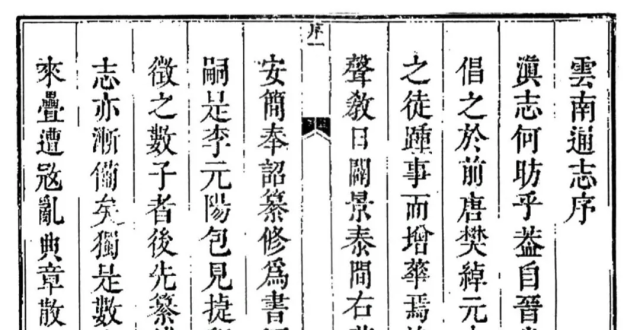 雲南通志序
滇志何昉乎葢自晉
倡之於前唐樊綽元
之徒踵事而增華焉
聲敎日闢景泰間右
序一
安簡奉詔纂修爲書
嗣是李元陽包見捷
徵之數子者後先纂
志亦漸備矣獨是數
來疊遭冦亂典章散